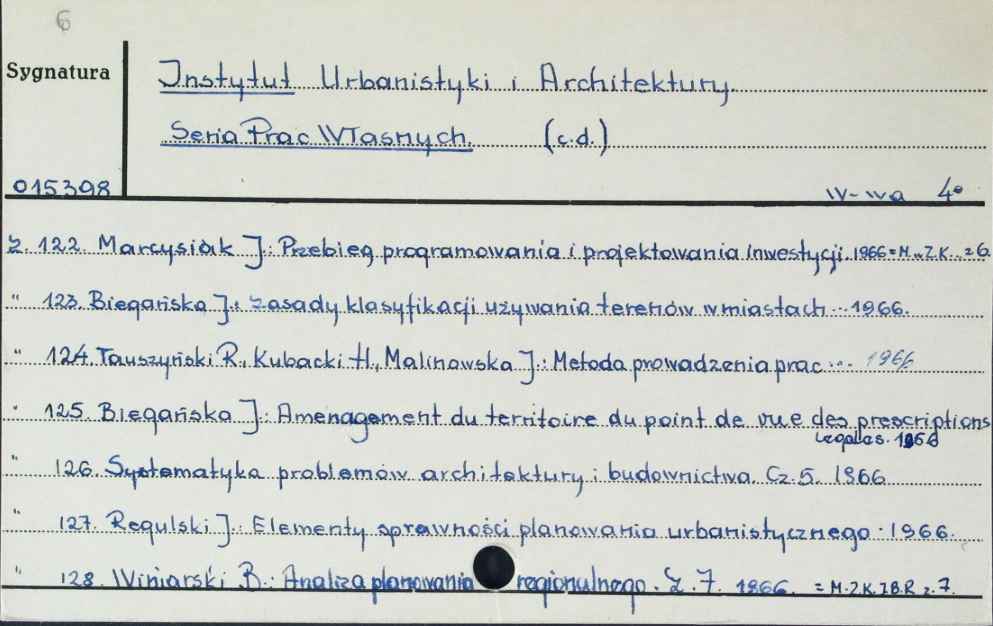 6
Sygnatura
Instytut Urbanistyki i Architektury.
Seria Prac Własnych. (c.d.)
015398
W-wa 4º
Z. 122. Marcysiak J.: Przebieg programowania i projektowania inwestycji. 1966 = M. Z.K. z 6
" 123. Biegańska J.: Zasady klasyfikacji używania terenów w miastach ... 1966.
" 124. Tauszyński R., Kubacki H., Malinowska J.: Metoda prowadzenia prac ... 1966
" 125. Biegańska J.: Amenagement du territoire du point de vue des prescriptions
legales. 1966
" 126. Systematyka problemów architektury i budownictwa. Cz. 5. 1966
" 127. Regulski J.: Elementy sprawności planowania urbanistycznego. 1966.
" 128. Winiarski B.: Analiza planowania regionalnego. Z. 7. 1966. = M.Z.K.Z.B.R z. 7.